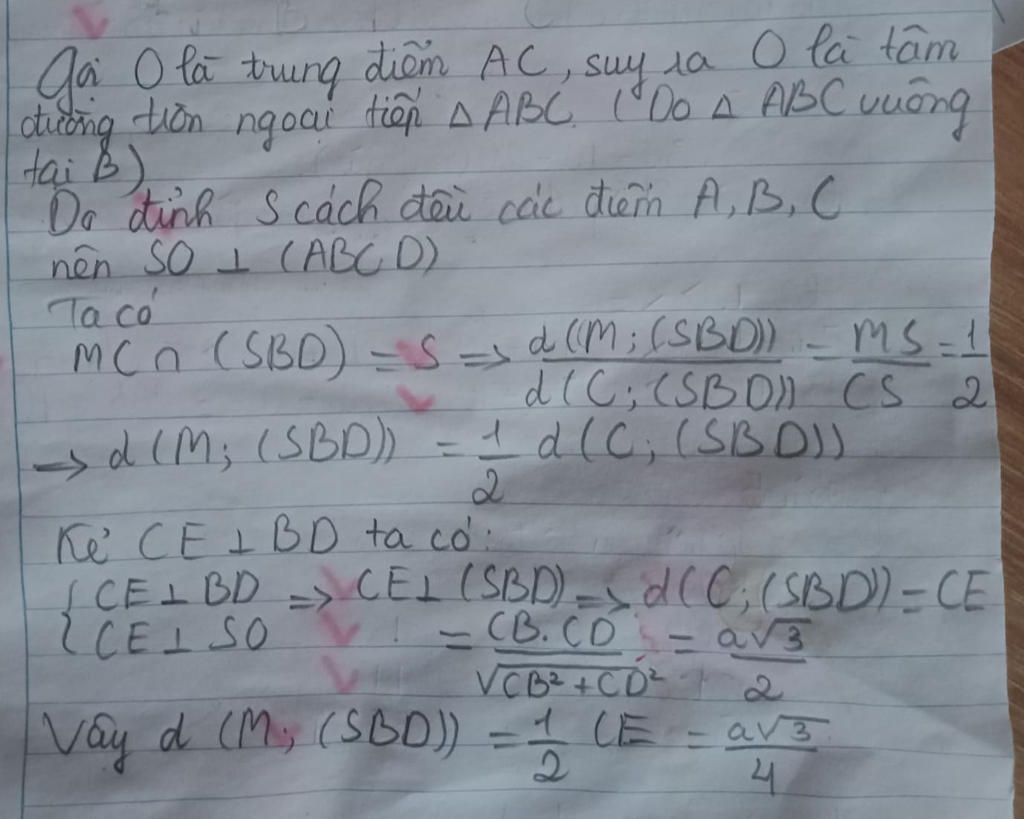 Gọi O là trung điểm AC, suy ra O là tâm
đường tròn ngoại tiếp △ ABC. (Do △ ABC vuông
tại B)
Do đỉnh S cách đều các điểm A, B, C
nên SO ⊥ (ABCD)
Ta có
MC ∩ (SBD) = S => d(M; (SBD)) / d(C; (SBD)) = MS / CS = 1/2
-> d(M; (SBD)) = 1/2 d(C; (SBD))
Kẻ CE ⊥ BD ta có:
{ CE ⊥ BD => CE ⊥ (SBD) => d(C; (SBD)) = CE
{ CE ⊥ SO = CB.CD / √CB² + CD² = a√3 / 2
Vậy d (M; (SBD)) = 1/2 CE = a√3 / 4